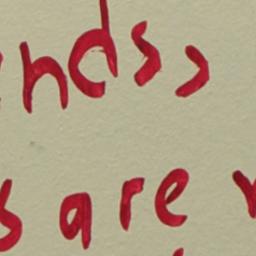 nds,
s are